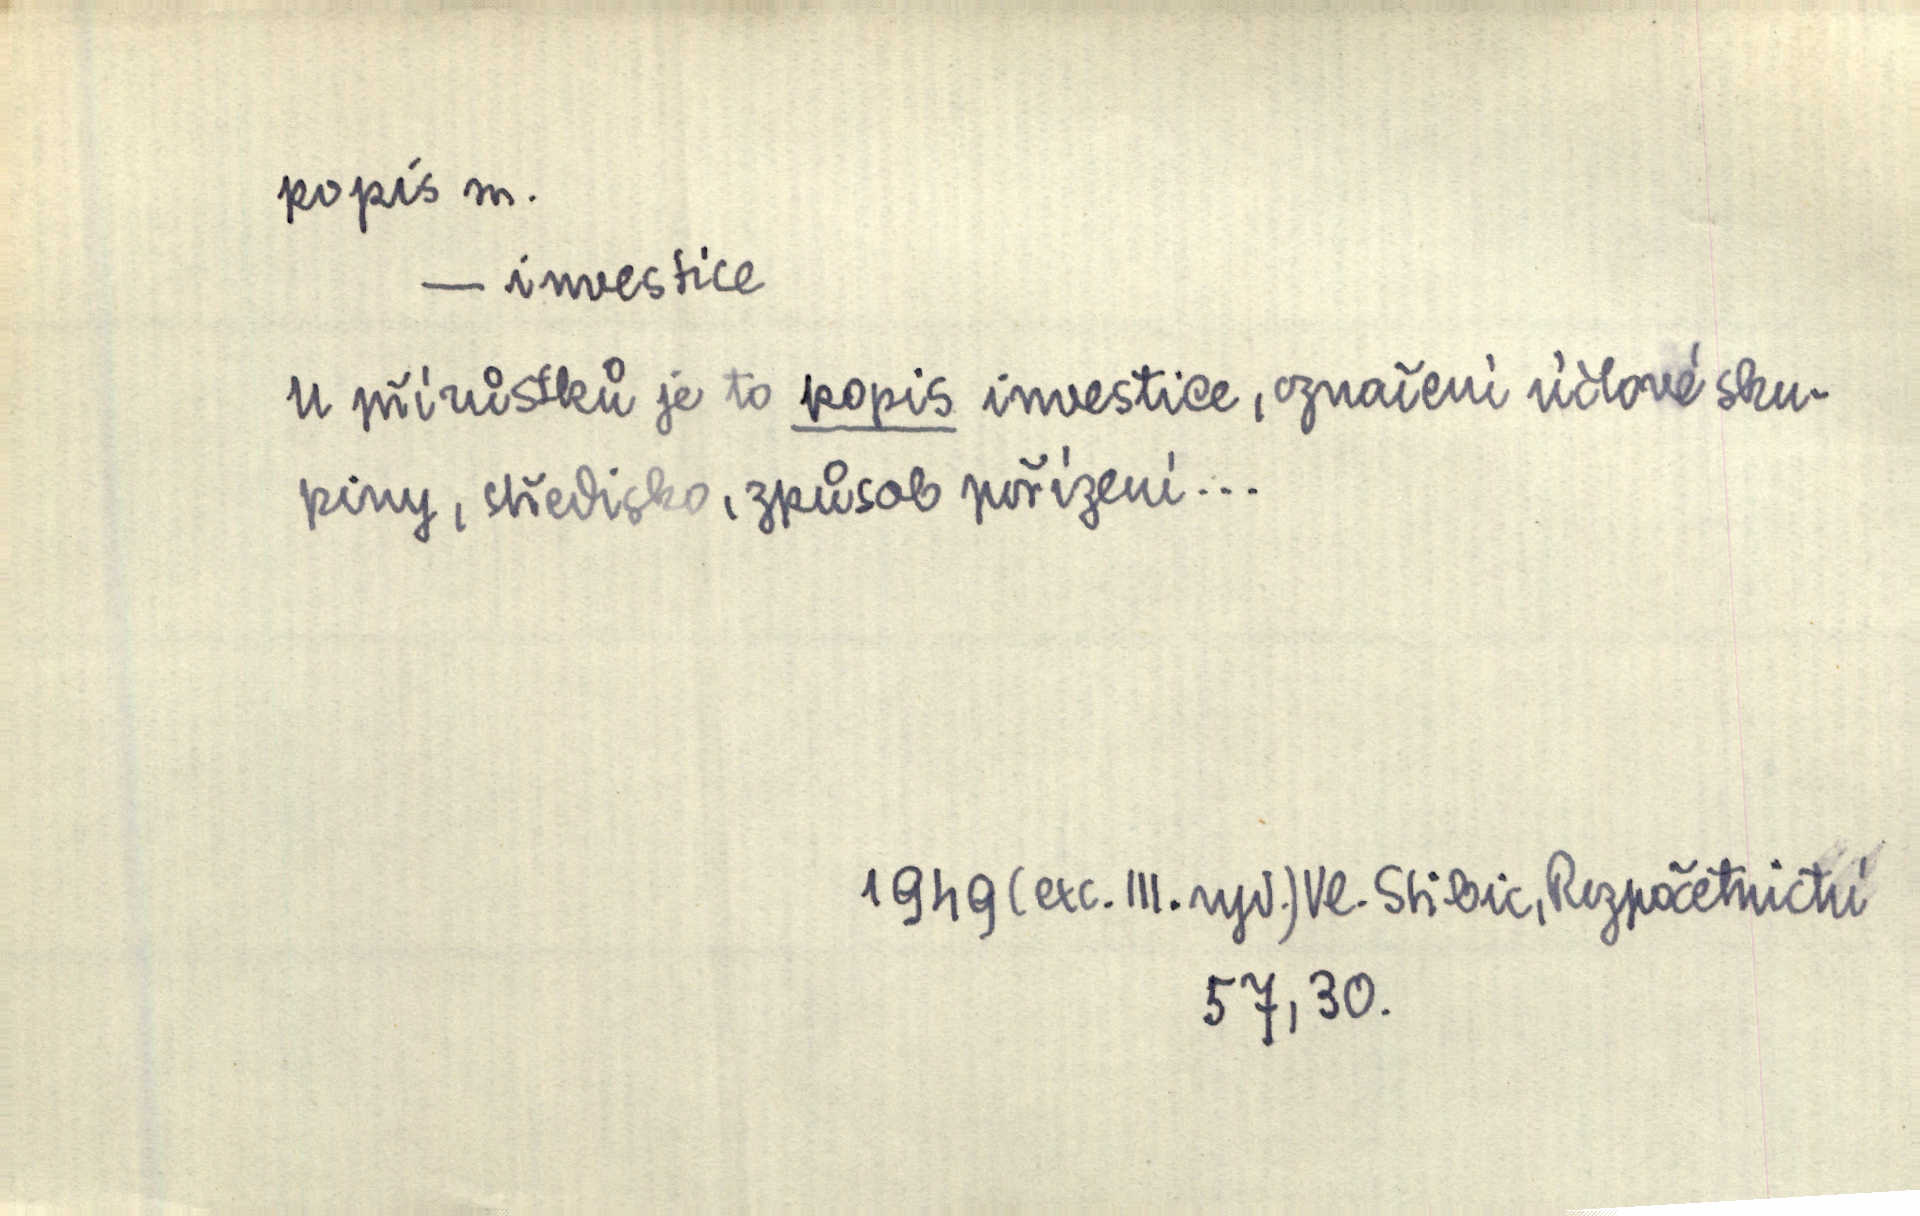 popis m.
— investice
U přírůstků je to popis investice, označení účtové sku-
piny, středisko, způsob pořízení...
1949 (exc. III. vyd.) Vl. Stibic, Rozpočetnictví
57, 30.